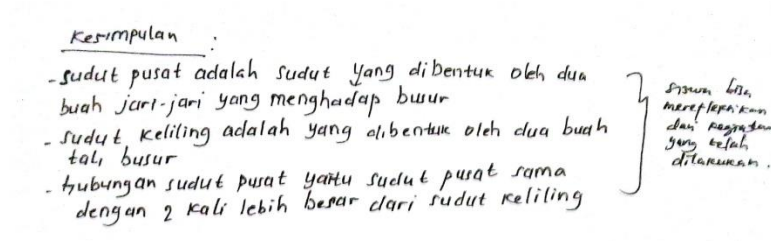 Kesimpulan :
- Sudut pusat adalah sudut yang dibentuk oleh dua
buah jari-jari yang menghadap busur
- Sudut keliling adalah yang dibentuk oleh dua buah
tali busur
- hubungan sudut pusat yaitu sudut pusat sama
dengan 2 kali lebih besar dari sudut keliling
siswa bisa
merefleksikan
dari kegiatan
yang telah
dilakukan.